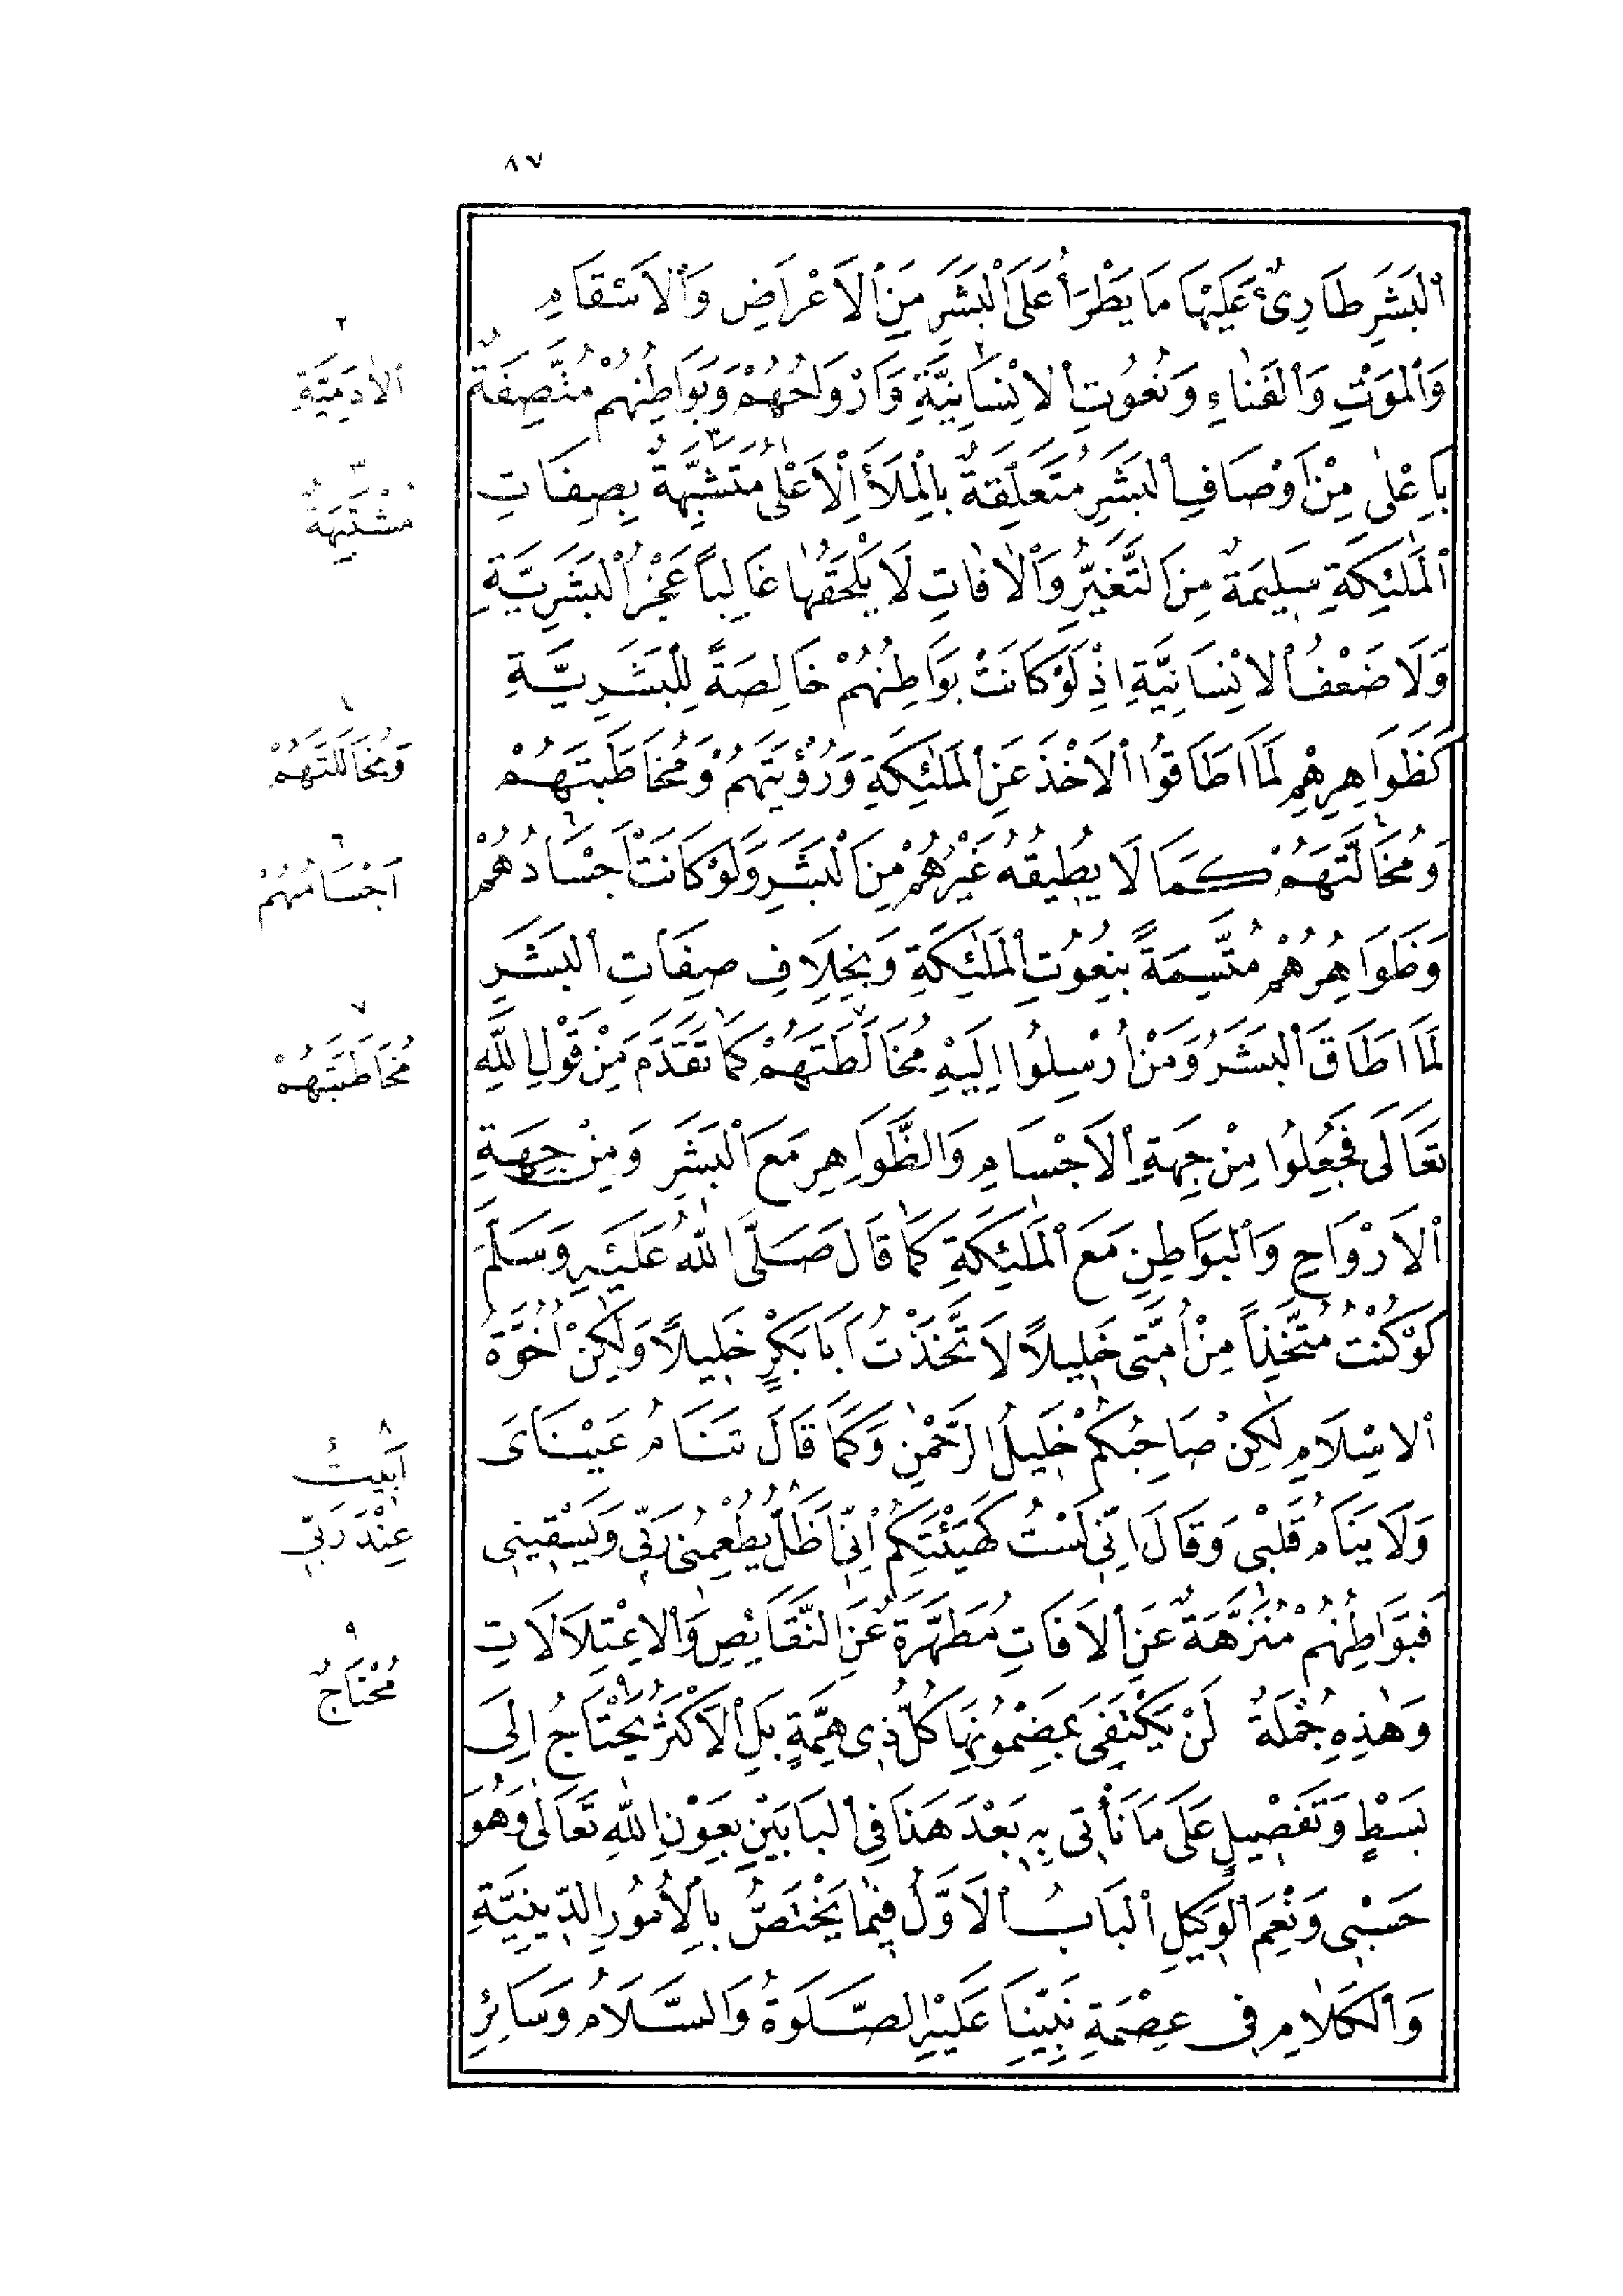 ٨٧
اَلْبَشَرِ طَارِئٌ عَلَيْهَا مَا يَطْرَأُ عَلَى الْبَشَرِ مِنَ الْاَعْرَاضِ وَالْاَسْقَامِ
وَالْمَوْتِ وَالْفَنَاءِ وَنُعُوتِ الْاِنْسَانِيَّةِ وَاَرْوَاحُهُمْ وَبَوَاطِنُهُمْ مُتَّصِفَةٌ
بِاَعْلٰى مِنْ اَوْصَافِ الْبَشَرِ مُتَعَلِّقَةٌ بِالْمَلَأِ الْاَعْلٰى مُتَشَبِّهَةٌ بِصِفَاتِ
الْمَلٰئِكَةِ سَلِيمَةٌ مِنَ التَّغَيُّرِ وَالْاٰفَاتِ لَا يَلْحَقُهَا غَالِباً عَجْزُ الْبَشَرِيَّةِ
وَلَا ضَعْفُ الْاِنْسَانِيَّةِ اِذْ لَوْ كَانَتْ بَوَاطِنُهُمْ خَالِصَةً لِلْبَشَرِيَّةِ
كَظَوَاهِرِهِمْ لَمَا اَطَاقُوا الْاَخْذَ عَنِ الْمَلٰئِكَةِ وَرُؤْيَتَهُمْ وَمُخَاطَبَتَهُمْ
وَمُخَالَّتَهُمْ كَمَا لَا يُطِيقُهُ غَيْرُهُمْ مِنَ الْبَشَرِ وَلَوْ كَانَتْ اَجْسَادُهُمْ
وَظَوَاهِرُهُمْ مُتَّسِمَةً بِنُعُوتِ الْمَلٰئِكَةِ وَبِخِلَافِ صِفَاتِ الْبَشَرِ
لَمَا اَطَاقَ الْبَشَرُ وَمَنْ اُرْسِلُوا اِلَيْهِ مُخَالَطَتَهُمْ كَمَا تَقَدَّمَ مِنْ قَوْلِ اللّٰهِ
تَعَالَى فَجُعِلُوا مِنْ جِهَةِ الْاَجْسَامِ وَالظَّوَاهِرِ مَعَ الْبَشَرِ وَمِنْ جِهَةِ
الْاَرْوَاحِ وَالْبَوَاطِنِ مَعَ الْمَلٰئِكَةِ كَمَا قَالَ صَلَّى اللّٰهُ عَلَيْهِ وَسَلَّمَ
لَوْ كُنْتُ مُتَّخِذاً مِنْ اُمَّتِى خَلِيلاً لَاتَّخَذْتُ اَبَا بَكْرٍ خَلِيلاً وَلٰكِنْ اُخُوَّةُ
الْاِسْلَامِ لٰكِنْ صَاحِبُكُمْ خَلِيلُ الرَّحْمٰنِ وَكَمَا قَالَ تَنَامُ عَيْنَاىَ
وَلَا يَنَامُ قَلْبِى وَقَالَ اِنِّى لَسْتُ كَهَيْئَتِكُمْ اِنِّى اَظَلُّ يُطْعِمُنِى رَبِّى وَيَسْقِينِى
فَبَوَاطِنُهُمْ مُنَزَّهَةٌ عَنِ الْاٰفَاتِ مُطَهَّرَةٌ عَنِ النَّقَائِصِ وَالْاِعْتِلَالَاتِ
وَهٰذِهِ جُمْلَةٌ لَنْ يَكْتَفِىَ بِمَضْمُونِهَا كُلُّ ذِى هِمَّةٍ بَلِ الْاَكْثَرُ يَحْتَاجُ اِلَى
بَسْطٍ وَتَفْصِيلٍ عَلَى مَا نَأْتِى بِهِ بَعْدَ هَذَا فِى الْبَابَيْنِ بِعَوْنِ اللّٰهِ تَعَالَى وَهُوَ
حَسْبِى وَنِعْمَ الْوَكِيلِ اَلْبَابُ الْاَوَّلُ فِيمَا يَخْتَصُّ بِالْاُمُورِ الدِّينِيَّةِ
وَالْكَلَامِ فِى عِصْمَةِ نَبِيِّنَا عَلَيْهِ الصَّلٰوةُ وَالسَّلَامُ وَسَائِرِ
٢
الْاٰدَمِيَّةِ
٣
مُشْتَبِهَةٌ
٤
وَمُخَالَلَتَهُمْ
٦
اَجْسَامُهُمْ
٧
مُخَاطَبَتَهُمْ
٨
اَبِيتُ
عِنْدَ رَبِّى
٩
مُحْتَاجٌ